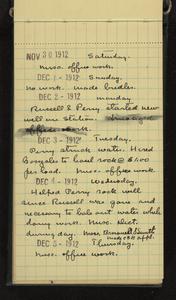 NOV 30 1912 Saturday.
Misc. office work.
DEC 1 - 1912 Sunday.
No work. Made bridles.
DEC 2 - 1912 Monday
Russell & Perry started new
well in Station.
office work.
DEC 3 - 1912 Tuesday.
Perry struck water. Hired
to haul rock @ $1.00
per load. Misc. office work
DEC 4 - 1912 Wednesday.
Helped Perry rock well
since Russell was gone and
necessary to bale out water while
doing work. Misc. Dict.
during day. Mrs.
DEC 5 - 1912 Thursday.
Misc. office work.